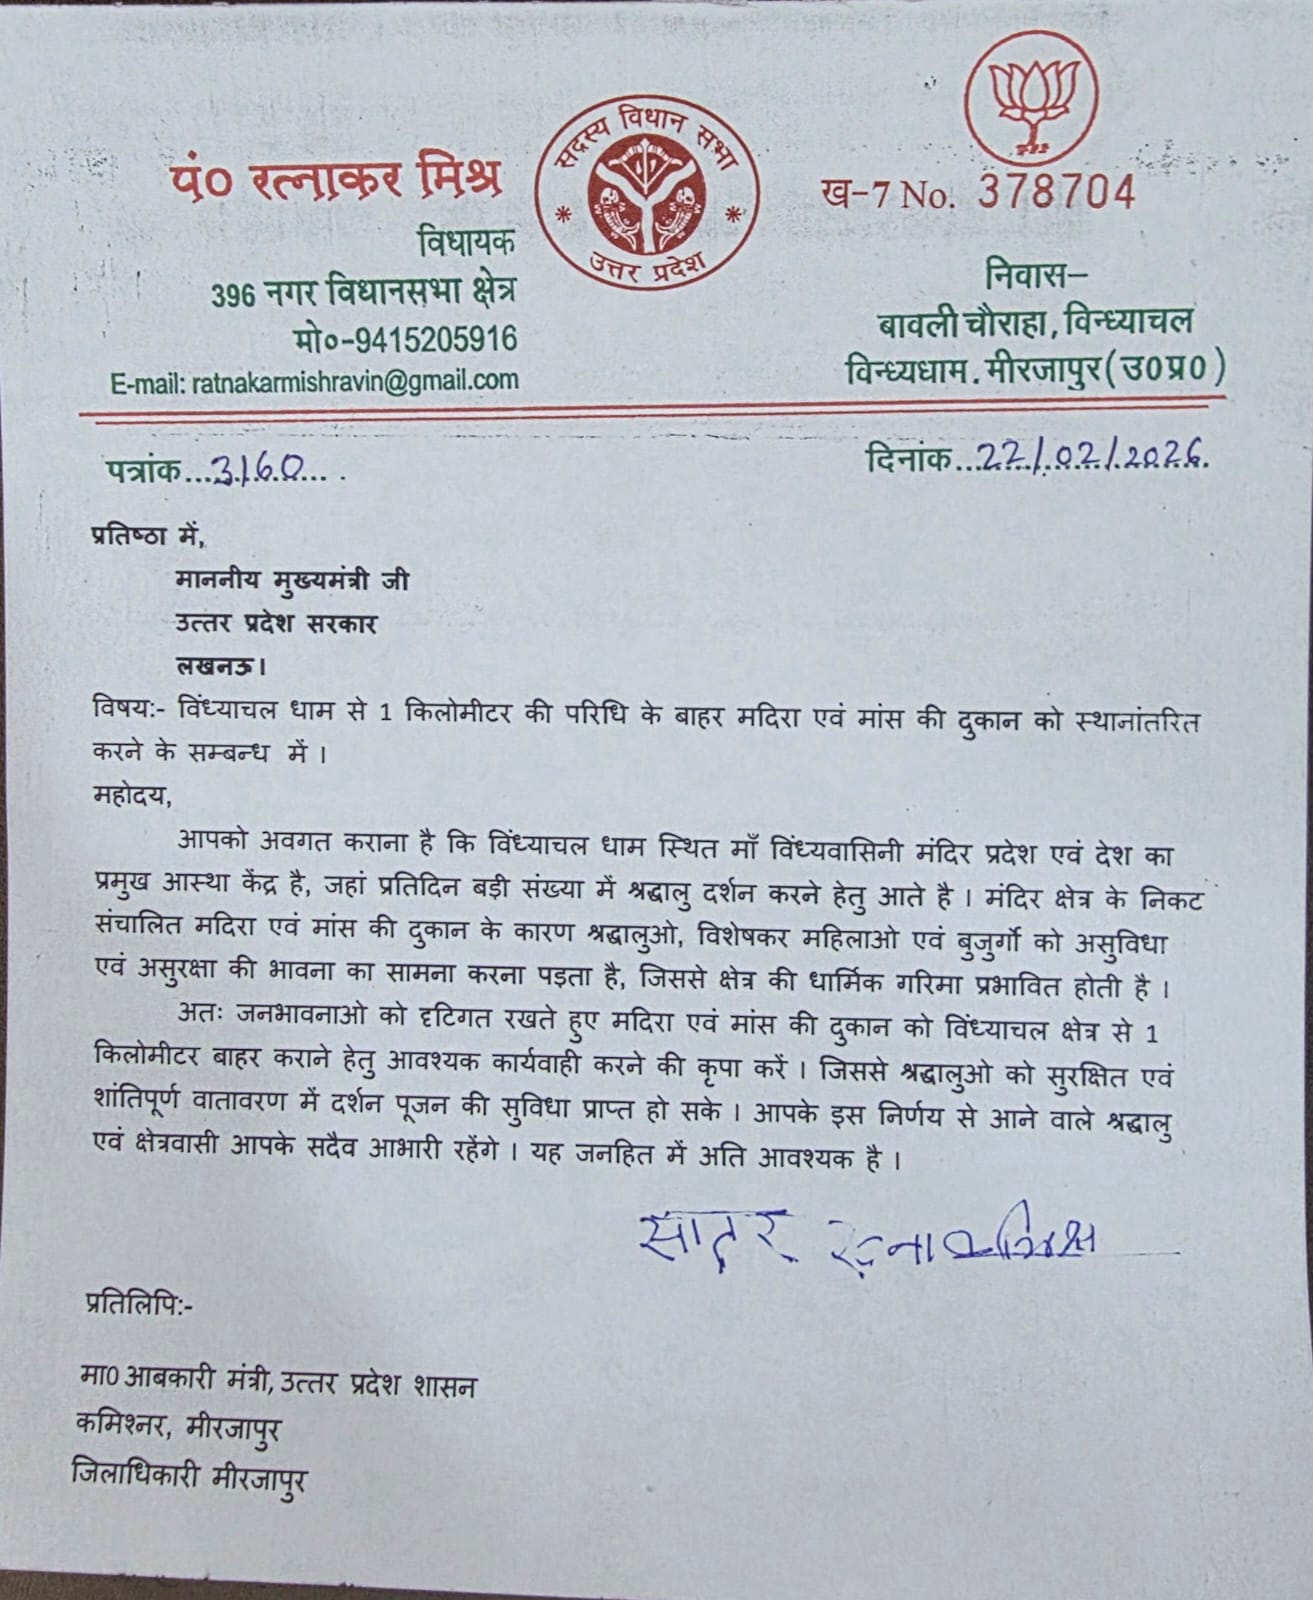 पं० रत्नाकर मिश्र
विधायक
396 नगर विधानसभा क्षेत्र
मो०-9415205916
E-mail: ratnakarmishravin@gmail.com
सदस्य विधान सभा
उत्तर प्रदेश
ख-7 No. 378704
निवास-
बावली चौराहा, विन्ध्याचल
विन्ध्यधाम. मीरजापुर (उ0प्र0)
पत्रांक...3160... .
दिनांक...22/.02/.2026.
प्रतिष्ठा में,
माननीय मुख्यमंत्री जी
उत्तर प्रदेश सरकार
लखनऊ।
विषय:- विंध्याचल धाम से 1 किलोमीटर की परिधि के बाहर मदिरा एवं मांस की दुकान को स्थानांतरित
करने के सम्बन्ध में ।
महोदय,
आपको अवगत कराना है कि विंध्याचल धाम स्थित माँ विंध्यवासिनी मंदिर प्रदेश एवं देश का
प्रमुख आस्था केंद्र है, जहां प्रतिदिन बड़ी संख्या में श्रद्धालु दर्शन करने हेतु आते है । मंदिर क्षेत्र के निकट
संचालित मदिरा एवं मांस की दुकान के कारण श्रद्धालुओ, विशेषकर महिलाओ एवं बुजुर्गो को असुविधा
एवं असुरक्षा की भावना का सामना करना पड़ता है, जिससे क्षेत्र की धार्मिक गरिमा प्रभावित होती है ।
अतः जनभावनाओ को दृटिगत रखते हुए मदिरा एवं मांस की दुकान को विंध्याचल क्षेत्र से 1
किलोमीटर बाहर कराने हेतु आवश्यक कार्यवाही करने की कृपा करें । जिससे श्रद्धालुओ को सुरक्षित एवं
शांतिपूर्ण वातावरण में दर्शन पूजन की सुविधा प्राप्त हो सके । आपके इस निर्णय से आने वाले श्रद्धालु
एवं क्षेत्रवासी आपके सदैव आभारी रहेंगे । यह जनहित में अति आवश्यक है ।
सादर
प्रतिलिपि:-
मा0 आबकारी मंत्री, उत्तर प्रदेश शासन
कमिश्नर, मीरजापुर
जिलाधिकारी मीरजापुर